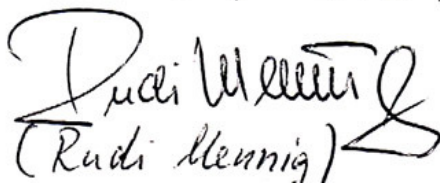 Rudi Mennig
(Rudi Mennig)